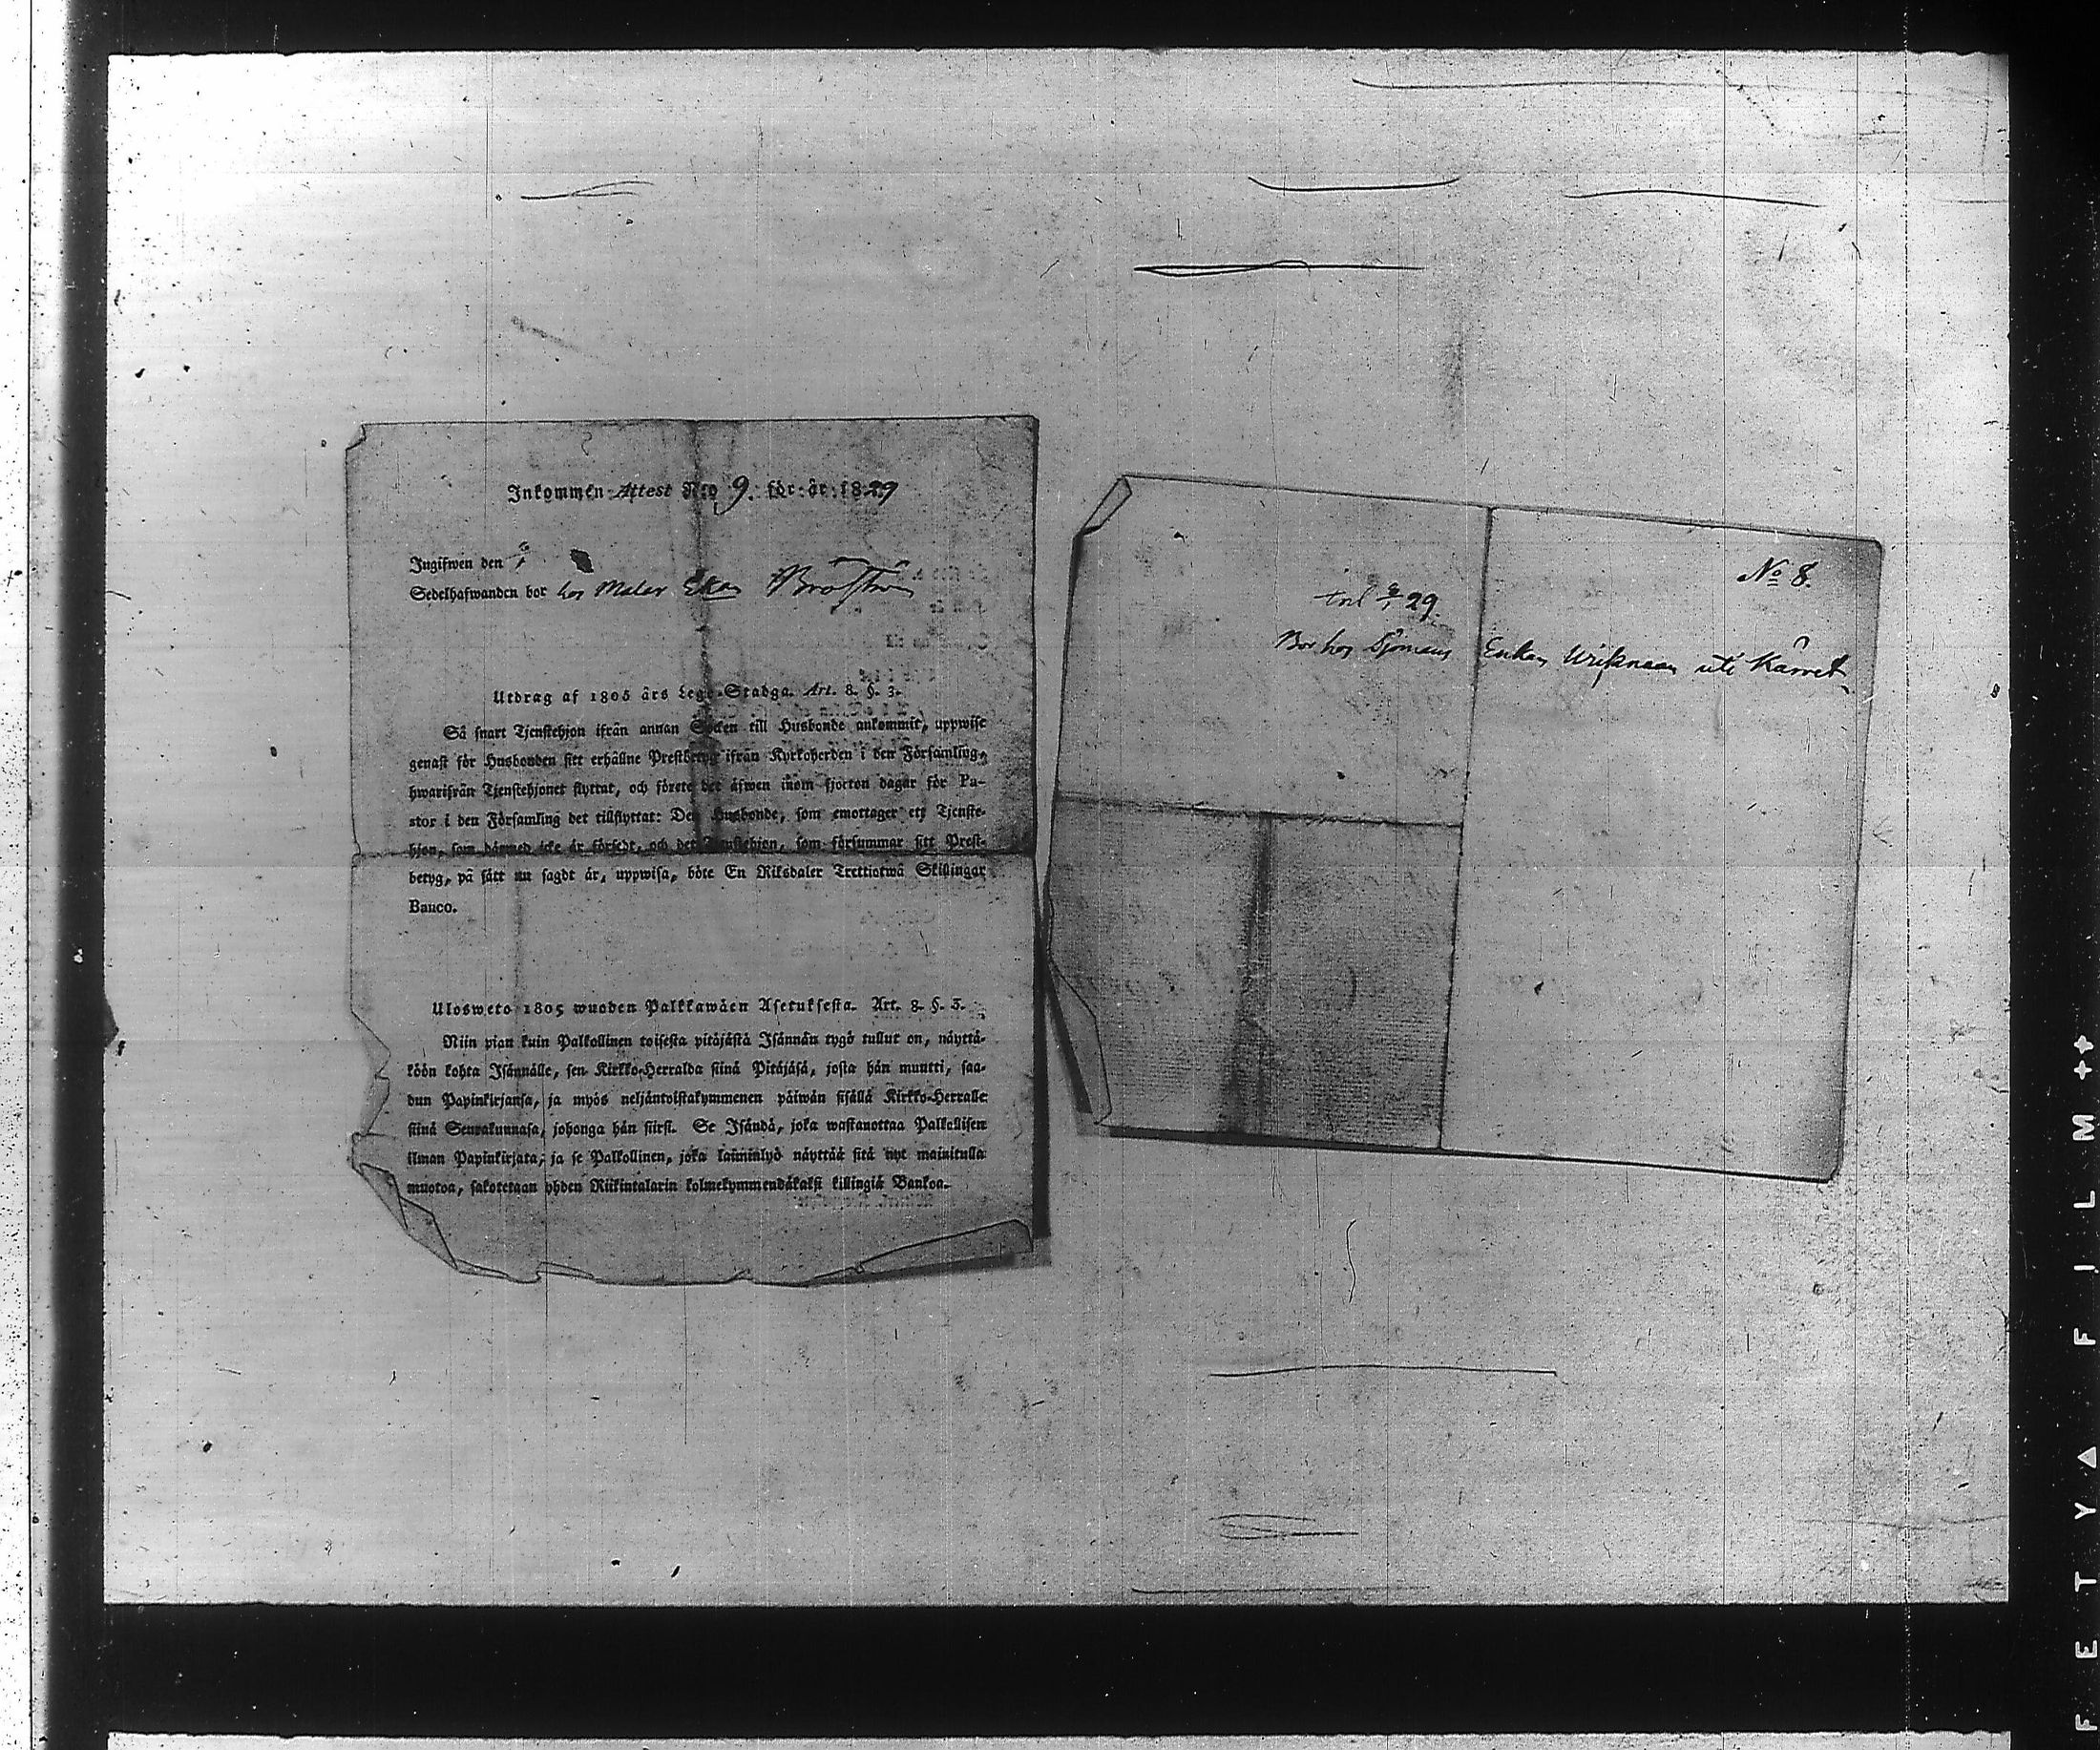 Inkommen Attest N:o 9. för år 1829
Ingifwen den
Sedelhafwanden bor hos Malar Ekan Broström
Utdrag af 1805 års Lego-Stadga. Art. 8. §. 3.
Så snart Tjenstehjon ifrån annan Socken till Husbonde ankommit, uppwise
genast för Husbonden sitt erhållne Prestbetyg ifrån Kyrkoherden i den Församling,
hwarifrån Tjenstehjonet flyttat, och förete det äfwen inom fjorton dagar för Pa-
stor i den Församling det tillflyttat: Den Husbonde, som emottager ett Tjenste-
hjon, som därmed icke är försedt, och det Tjenstehjon, som försummar sitt Prest-
betyg, på sätt nu sagdt är, uppwisa, böte En Riksdaler Trettiotwå Skillingar
Banco.
Ulosweto 1805 wuoden Palkkawäen Asetuksesta. Art. 8. §. 3.
Niin pian kuin Palkollinen toisesta pitäjästä Isännän tygö tullut on, näyttä-
köön kohta Isännälle, sen Kirkko-Herralda siinä Pitäjäsä, josta hän muutti, saa-
dun Papinkirjansa, ja myös neljäntoistakymmenen päiwän sisällä Kirkko-Herralle
siinä Seurakunnasa, johonga hän siirsi. Se Isändä, joka wastanottaa Palkollisen
ilman Papinkirjata, ja se Palkollinen, joka laiminlyö näyttää sitä nyt mainitulla
muotoa, sakotetaan yhden Riikintalarin kolmekymmendäkaksi killingiä Bankoa.
No 8.
29.
Bor hos Sjömans Enkan uti Kårvet